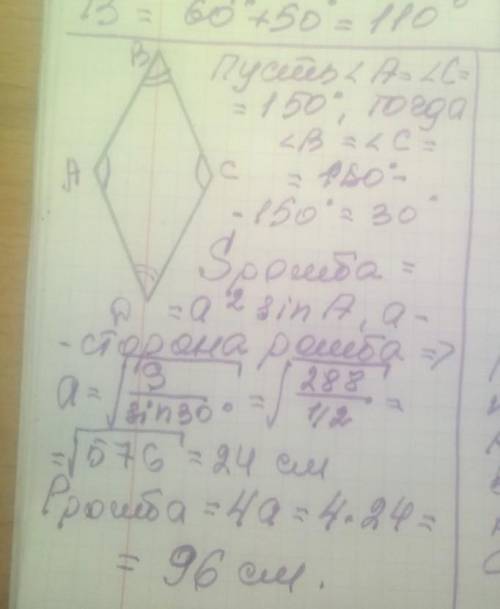 B = 60° + 50° = 110°
B
Пусть ∠A = ∠C =
= 150°, тогда
∠B = ∠C =
A
C
= 180° -
- 150° = 30°
S ромба =
D
= a² sin A, a -
- сторона ромба =>
a = √(S/sin30°) = √(288/1/2) =
= √576 = 24 см
P ромба = 4a = 4 · 24 =
= 96 см.